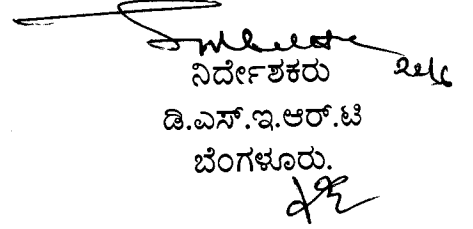 ನಿರ್ದೇಶಕರು
ಡಿ.ಎಸ್.ಇ.ಆರ್.ಟಿ
ಬೆಂಗಳೂರು.